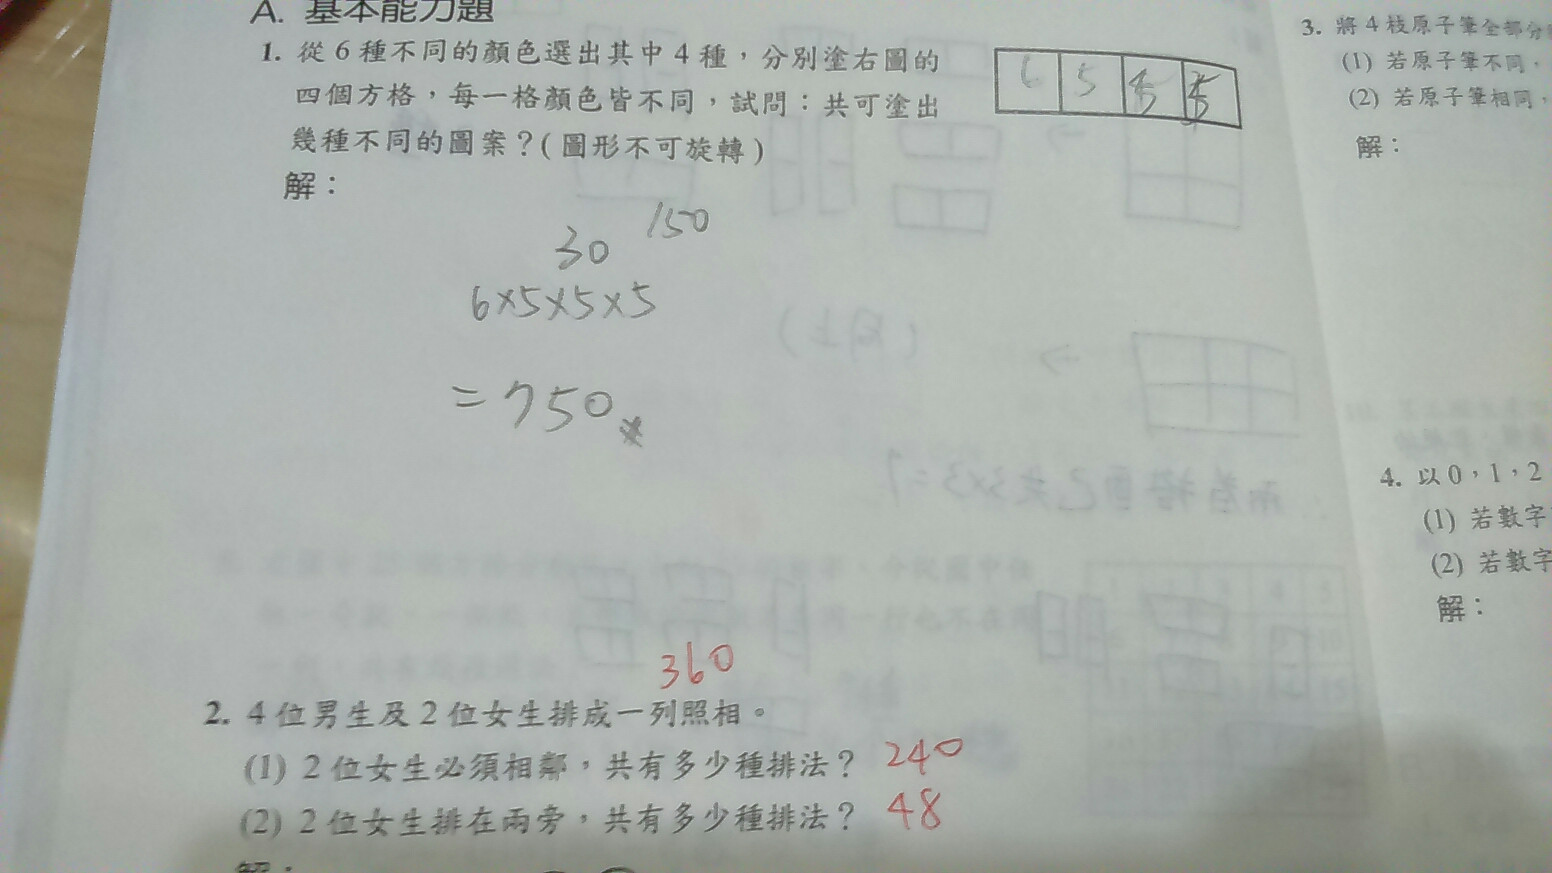 A. 基本能力題
1. 從 6 種不同的顏色選出其中 4 種，分別塗右圖的
四個方格，每一格顏色皆不同，試問：共可塗出
幾種不同的圖案？( 圖形不可旋轉 )
6 5
解：
30 150
6×5×5×5
=750
360
2. 4 位男生及 2 位女生排成一列照相。
(1) 2 位女生必須相鄰，共有多少種排法？ 240
(2) 2 位女生排在兩旁，共有多少種排法？ 48
解：
3. 將 4 枝原子筆全部分
(1) 若原子筆不同，
(2) 若原子筆相同，
解：
4. 以 0，1，2
(1) 若數字
(2) 若數字
解：